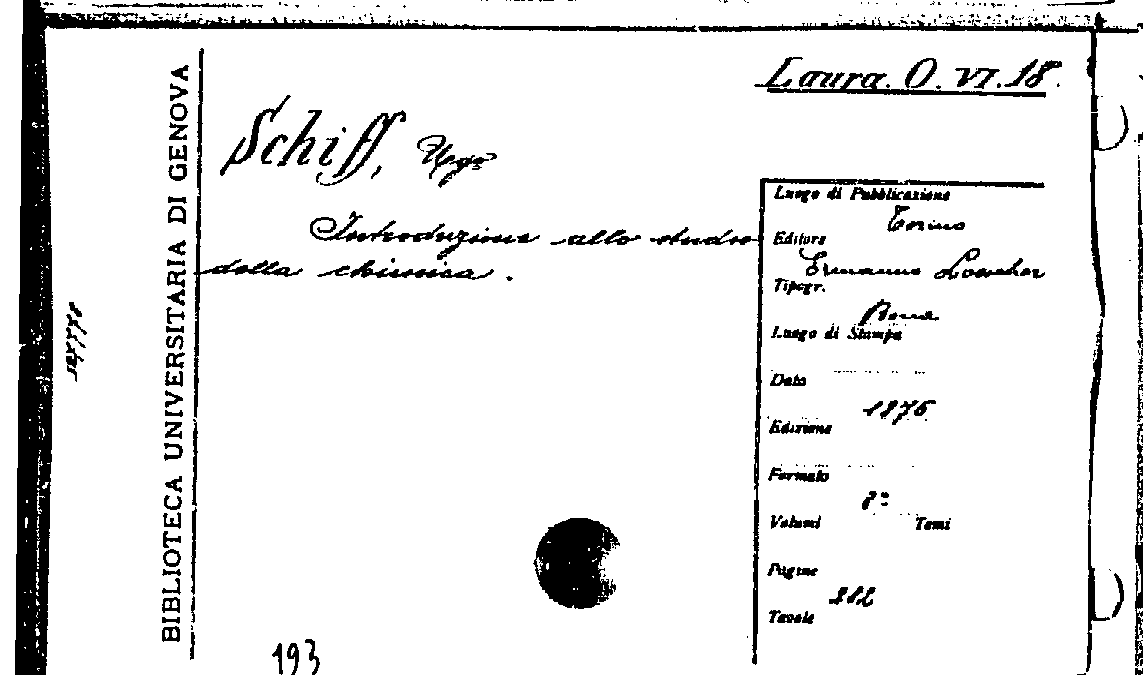 Laura. O. VI. 18.
BIBLIOTECA UNIVERSITARIA DI GENOVA
Schiff, Ugo
Introduzione allo studio
della chimica.
Luogo di Pubblicazione
Torino
Editore
Ermanno Loescher
Tipogr.
Bona
Luogo di Stampa
Data
1876
Edizione
Formato
8º
Volumi Tomi
Pagine
Tavole
193